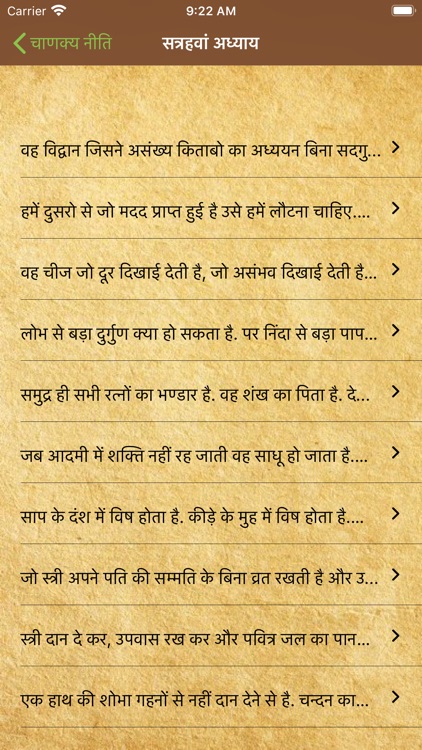 Carrier 9:22 AM
चाणक्य नीति सत्रहवां अध्याय
वह विद्वान जिसने असंख्य किताबो का अध्ययन बिना सदगु...
हमें दुसरो से जो मदद प्राप्त हुई है उसे हमें लौटना चाहिए....
वह चीज जो दूर दिखाई देती है, जो असंभव दिखाई देती है...
लोभ से बड़ा दुर्गुण क्या हो सकता है. पर निंदा से बड़ा पाप...
समुद्र ही सभी रत्नों का भण्डार है. वह शंख का पिता है. दे...
जब आदमी में शक्ति नहीं रह जाती वह साधू हो जाता है....
साप के दंश में विष होता है. कीड़े के मुह में विष होता है....
जो स्त्री अपने पति की सम्मति के बिना व्रत रखती है और उ...
स्त्री दान दे कर, उपवास रख कर और पवित्र जल का पान...
एक हाथ की शोभा गहनों से नहीं दान देने से है. चन्दन का...